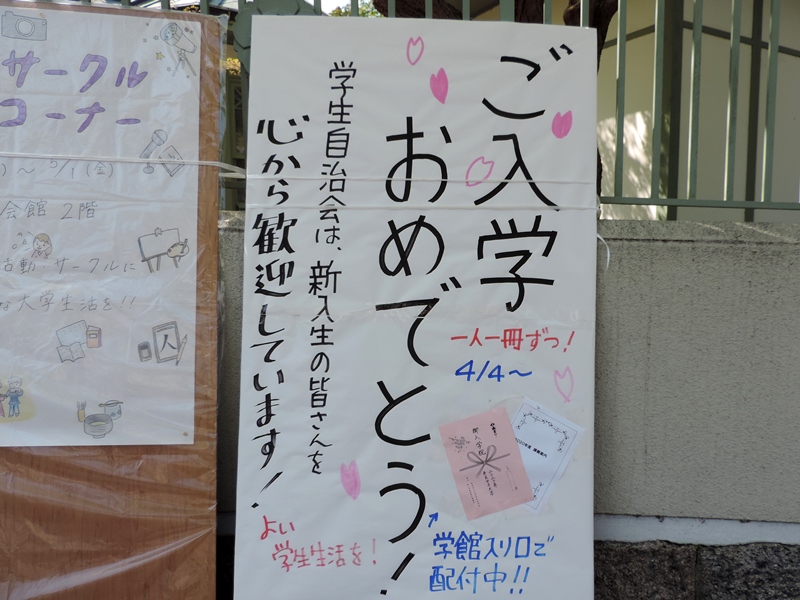 ご入学
おめでとう!
学生自治会は、新入生の皆さんを
心から歓迎しています!
一人一冊ずつ!
4/4～
学館入り口で
配付中!!
よい
学生生活を!
サークル
コーナー
～5/1(金)
会館 2階
活動・サークルに
な大学生活を!!